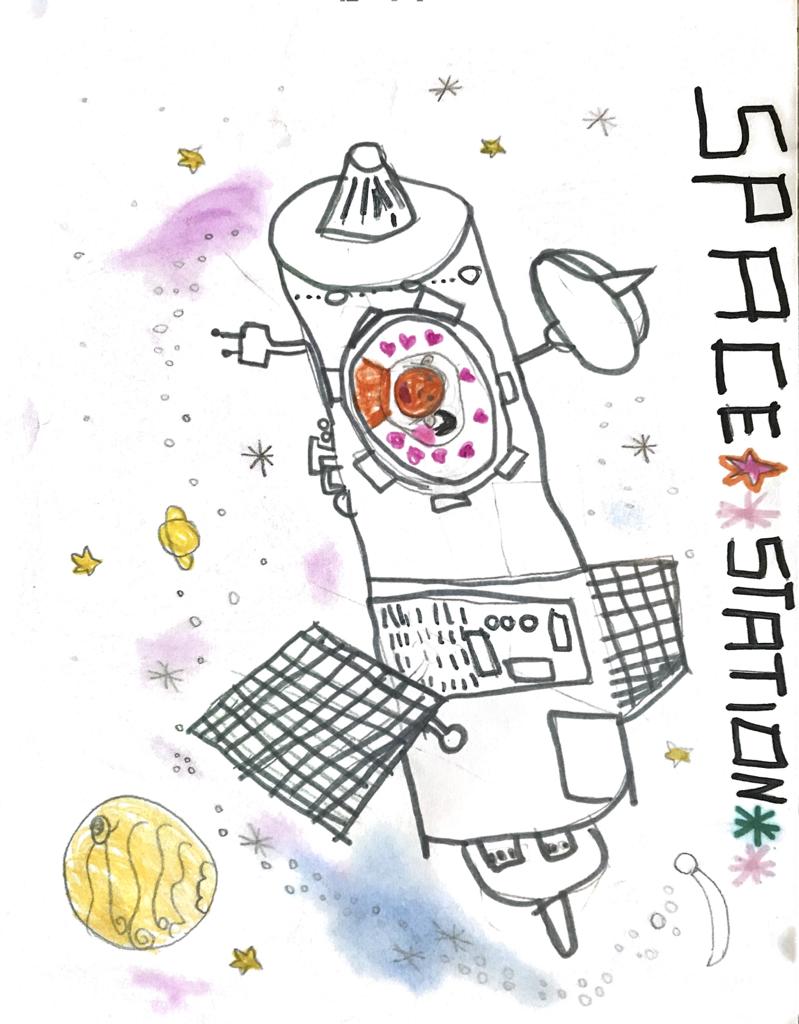 SPACE STATION